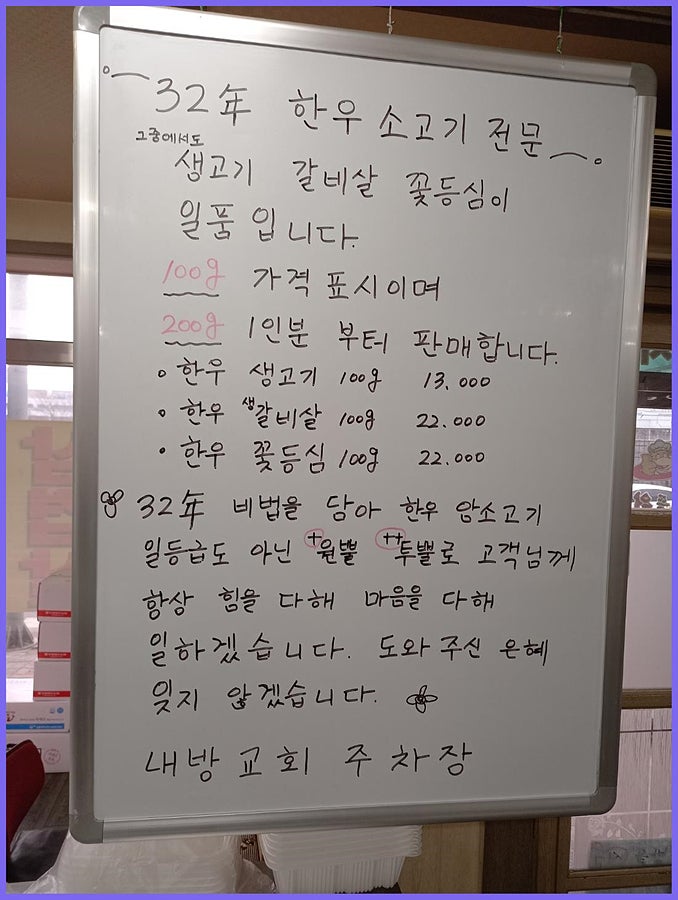 32年 한우 소고기 전문
그중에서도
생고기 갈비살 꽃등심이
일품 입니다.
100g 가격 표시이며
200g 1인분 부터 판매합니다.
한우 생고기 100g 13.000
한우 생갈비살 100g 22.000
한우 꽃등심 100g 22.000
32年 비법을 담아 한우 암소고기
일등급도 아닌 +원뿔 ++투뿔로 고객님께
항상 힘을 다해 마음을 다해
일하겠습니다. 도와 주신 은혜
잊지 않겠습니다.
내방교회 주차장